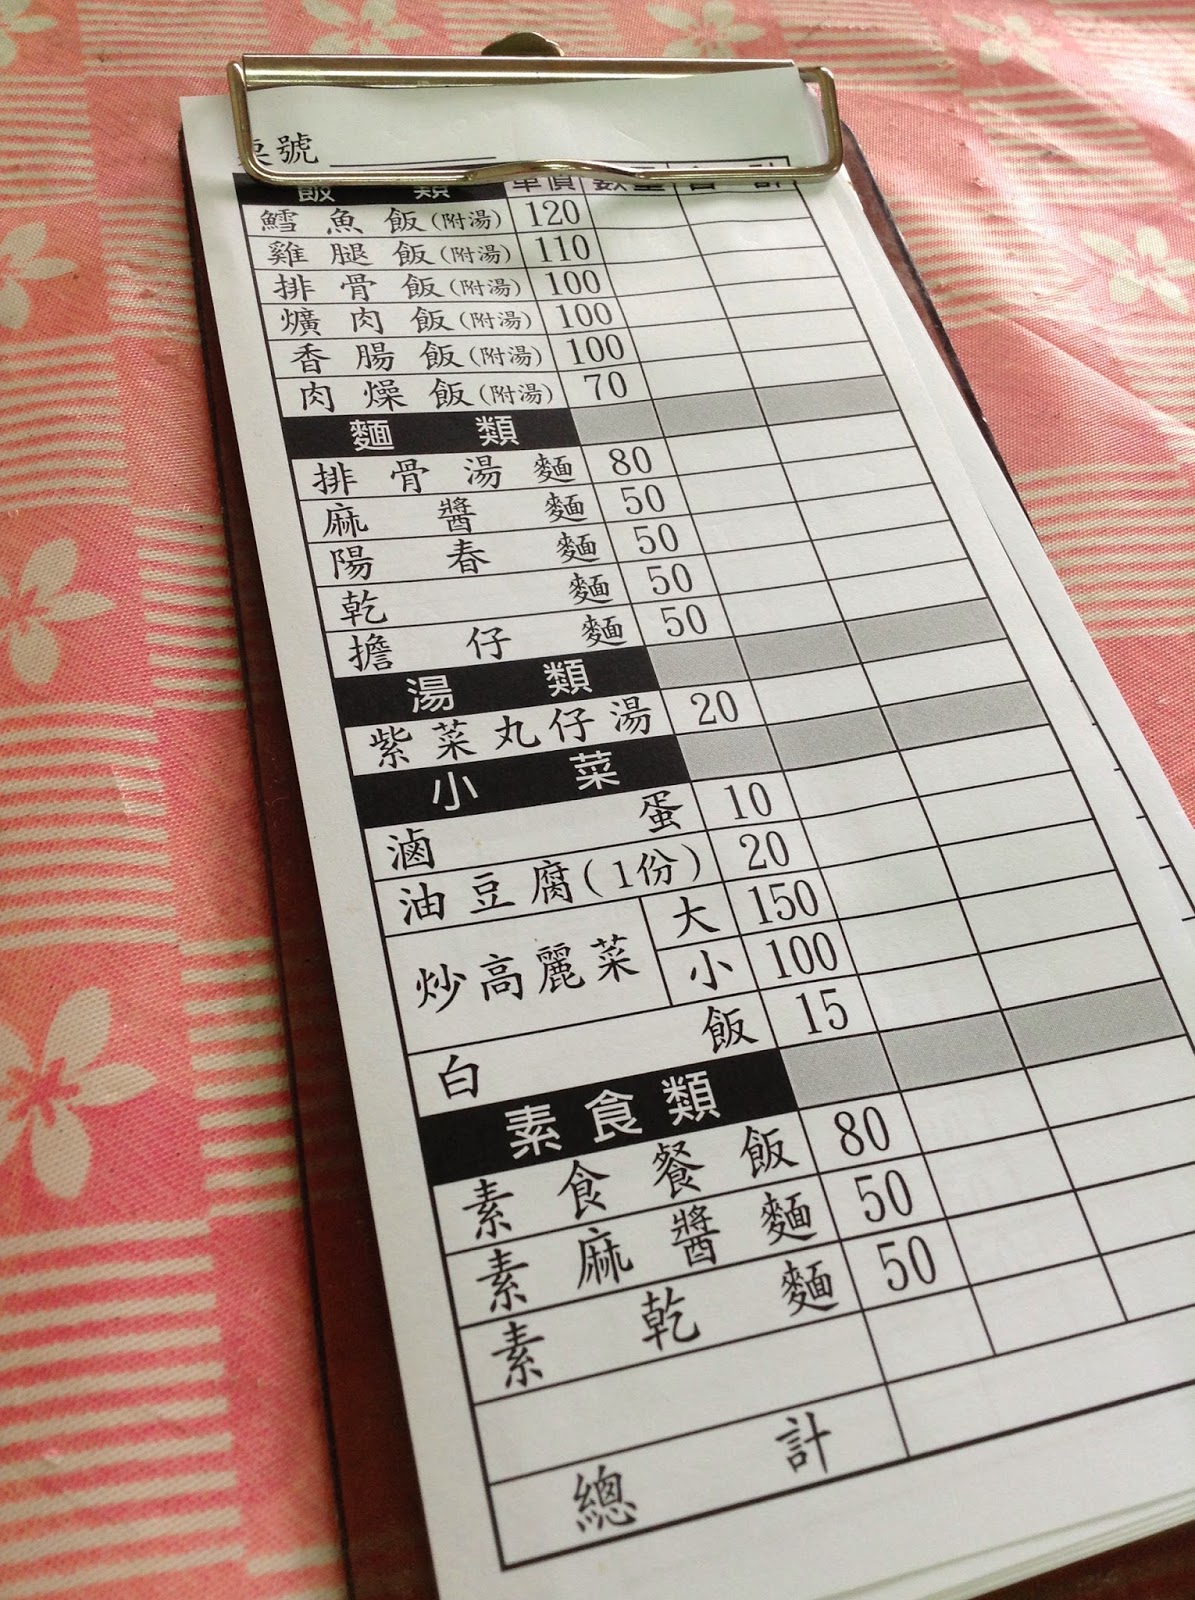 號
飯類 單價 數量 合計
鱈魚飯(附湯) 120
雞腿飯(附湯) 110
排骨飯(附湯) 100
爌肉飯(附湯) 100
香腸飯(附湯) 100
肉燥飯(附湯) 70
麵類
排骨湯麵 80
麻醬麵 50
陽春麵 50
乾麵 50
擔仔麵 50
湯類
紫菜丸仔湯 20
小菜
滷蛋 10
油豆腐(1份) 20
炒高麗菜 大 150
小 100
白飯 15
素食類
素食餐飯 80
素麻醬麵 50
素乾麵 50
總計